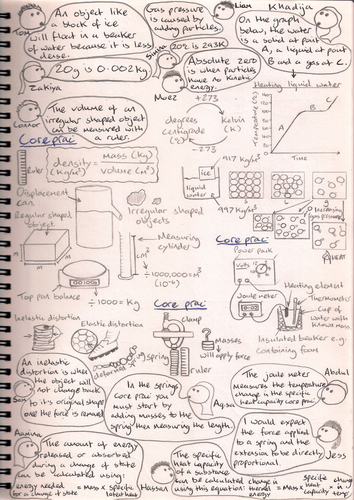 An object like
a block of ice
will float in a beaker
of water because it is less
dense.
Tom
Gas pressure is
caused by adding
particles.
Lian
Khadija
On the graph
below, the water
is a solid at point
A, a liquid at point
B and a gas at C.
20g is 0.002kg
Zakiya
20°C is 293K
Absolute zero
is when particles
have no kinetic
energy.
Moez
The volume of an
irregular shaped object
can be measured with
a ruler.
Connor
+273
degrees
centigrade
(°C)
Kelvin
(K)
-273
Heating liquid water
Temperature (°C)
A
B
C
Time
Core prac
ruler
density = mass (kg)
(kg/m³) volume (m³)
917 kg/m³
ice
liquid
water
997 kg/m³
Displacement
can
Regular shaped
object
m
m
m
Irregular shaped
objects
Measuring
cylinder
÷1000,000=m³
(10⁻⁶)
Top pan balance
÷1000=kg
Increasing
gas pressure
Core prac
Power pack
Volts
Joule meter
Heating element
Thermometer
Cup of
water with
known mass
Insulated beaker e.g.
containing foam
Core prac
clamp
spring
ruler
Masses
will apply force
Inelastic distortion
Elastic distortion
An inelastic
distortion is when the
object will
not change back
to its original shape
once the force is removed
In the springs
core prac you
must start by
adding masses to the
spring then measuring the length.
Aqsa
The joule meter
measures the temperature
change in the specific
heat capacity core prac
Abdul
I would expect
the force applied
to a spring and
the extension
to be directly
proportional.
Jess
Aamina
The amount of energy
released or absorbed
during a change of state
can be calculated using:
energy needed = mass x specific
for a change of state latent heat
Hassan
The specific
heat capacity
of a substance
can be calculated
using this equation:
change in
thermal = mass x
energy
specific
heat x
capacity
change
in
temp